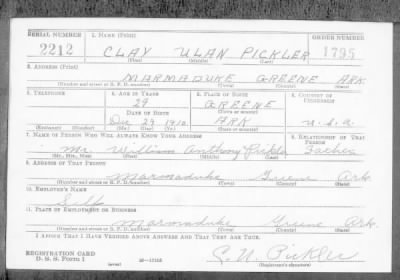 SERIAL NUMBER 1. NAME (Print) ORDER NUMBER
2212 CLAY ULAN PICKLER 1795
(First) (Middle) (Last)
2. ADDRESS (Print)
MARMADUKE GREENE ARK
(Number and street or R. F. D. number) (Town) (County) (State)
3. TELEPHONE 4. AGE IN YEARS 5. PLACE OF BIRTH 6. COUNTRY OF CITIZENSHIP
29 GREENE
DATE OF BIRTH (Town or county)
Dec 29 1910 ARK U.S.A.
(Exchange) (Number) (Mo.) (Day) (Yr.) (State or country)
7. NAME OF PERSON WHO WILL ALWAYS KNOW YOUR ADDRESS 8. RELATIONSHIP OF THAT PERSON
Mr. William Anthony Pickler Father
(Mr., Mrs., Miss) (First) (Middle) (Last)
9. ADDRESS OF THAT PERSON
Marmaduke Greene Ark.
(Number and street or R. F. D. number) (Town) (County) (State)
10. EMPLOYER'S NAME
Self
11. PLACE OF EMPLOYMENT OR BUSINESS
Marmaduke Greene Ark.
(Number and street or R. F. D. number) (Town) (County) (State)
I AFFIRM THAT I HAVE VERIFIED ABOVE ANSWERS AND THAT THEY ARE TRUE.
REGISTRATION CARD
D. S. S. Form 1 (over) 16—17105 Pickler
(Registrant's signature)